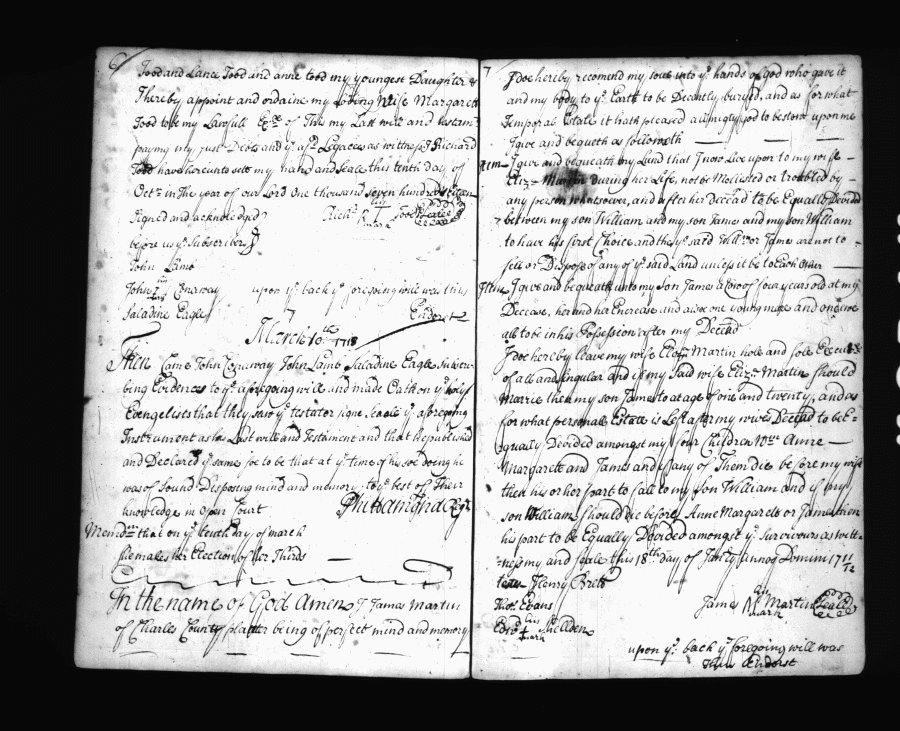 6
Todd and Lance Todd and anne todd my youngest Daughter &
I hereby appoint and ordaine my Loving Wife Margarett
Todd to be my Lawfull Ex:ce of This my Last will and testamt
paying my just Debts and ye afsd Legaces as wittness I Richard
Todd have hereunto sett my hand and seale this tenth day of
Octr in The year of our Lord One thousand seven hundred
Signed and acknowledged Richd his T mark Todd Seale
before us ye Subscribers
John Lamb
John his mark Conaway upon ye back ye foregoing will was thus
Saladine Eagle Endorst
March 10th 1718
Then Came John Conaway John Lamb Saladine Eagle Subscri-
bing Evidences to ye aforegoing will and made Oath on ye holy
Evangelists that they saw ye testator signe Seale ye aforegoing
Instrument as his Last will and Testament and that he published
and Declared ye same soe to be that at ye time of his soe doing he
was of Sound Disposing mind and memory to ye best of Their
knowledge in Open Court
Memdm that on ye tenth day of march
she makes her Election of her Thirds
In the name of God Amen I James Martin
of Charles County planter being of perfect mind and memory
7
I doe hereby recomend my soul into ye hands of god who gave it
and my body to ye Earth to be Decantly buryed, and as for what
Temporal Estate it hath pleased almighty god to bestow upon me
I give and begueth as followeth
Item I give and bequeath my Land that I now Live upon to my wife
Elizth Martin during her Life, not be Mollested or troubled by
any person whatsoever, and after her Deceasd to be Equally Devided
between my son William and my son James and my son William
to have his first Choice and they ye said Willm or James are not to
sell or Dispose of any of ye said Land unless it be to Each other
Item I give and bequeath unto my Son James a Cow of four years old at my
Decease, her and her Encrease and also one young mare and one
all to be in his Possession after my Deceasd
I doe hereby leave my wife Elizth Martin hole and sole Execut
of all and singular and if my said wife Elizth Martin should
Marrie then my son James to at age of one and twenty, and as
for what personall Estate is Left after my wives Deceasd to be E-
qually Devided amongst my four Children Wm Anne
Margarett and James and if any of Them die before my wife
then his or her part to fall to my Son William and if my
son William should die before Anne Margarett or James then
his part to be Equally Devided amongst ye Survivours as witt-
ness my and seale this 18th day of Janry annoq Domini 1711/12
Henry Brett
Thos: Evans James his M mark Martin Seale
Edwd his mark Skellden
upon ye back ye foregoing will was
thus Endorst